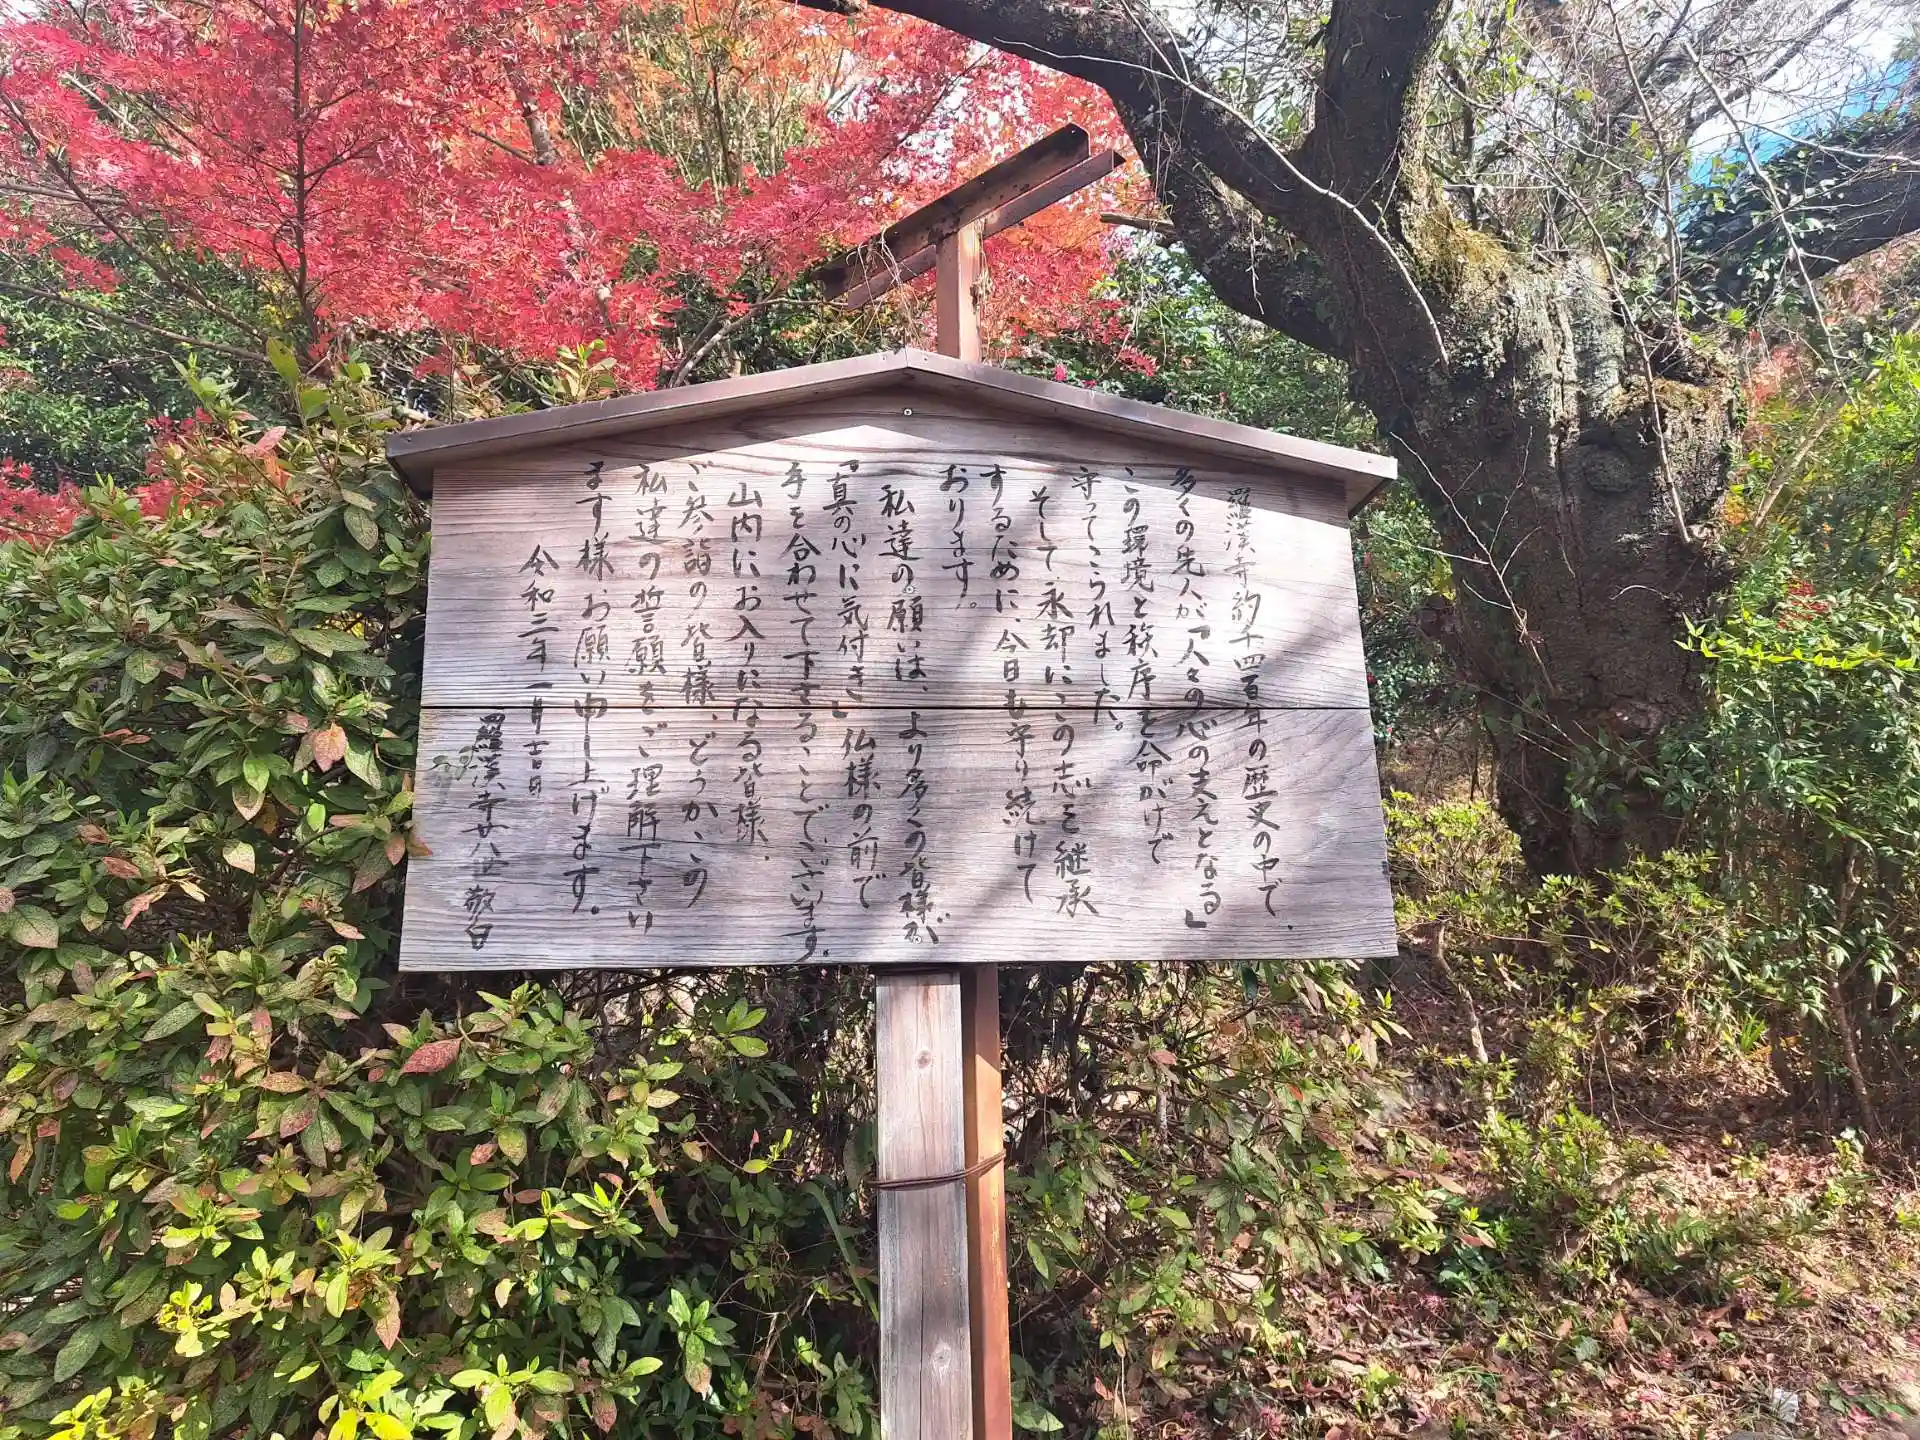 羅漢寺約千四百年の歴史の中で、
多くの先人が「人々の心の支えとなる」
この環境と秩序を命がけで
守ってこられました。
そして永却にこの志を継承
するために、今日も守り続けて
おります。
私達の願いは、より多くの皆様が
「真の心に気付き」仏様の前で
手を合わせて下さることでございます。
山内にお入りになる皆様、
ご参詣の皆様、どうか、この
私達の誓願をご理解下さい
ます様お願い申し上げます。
令和三年 一月 吉日
羅漢寺廿八世 敬白